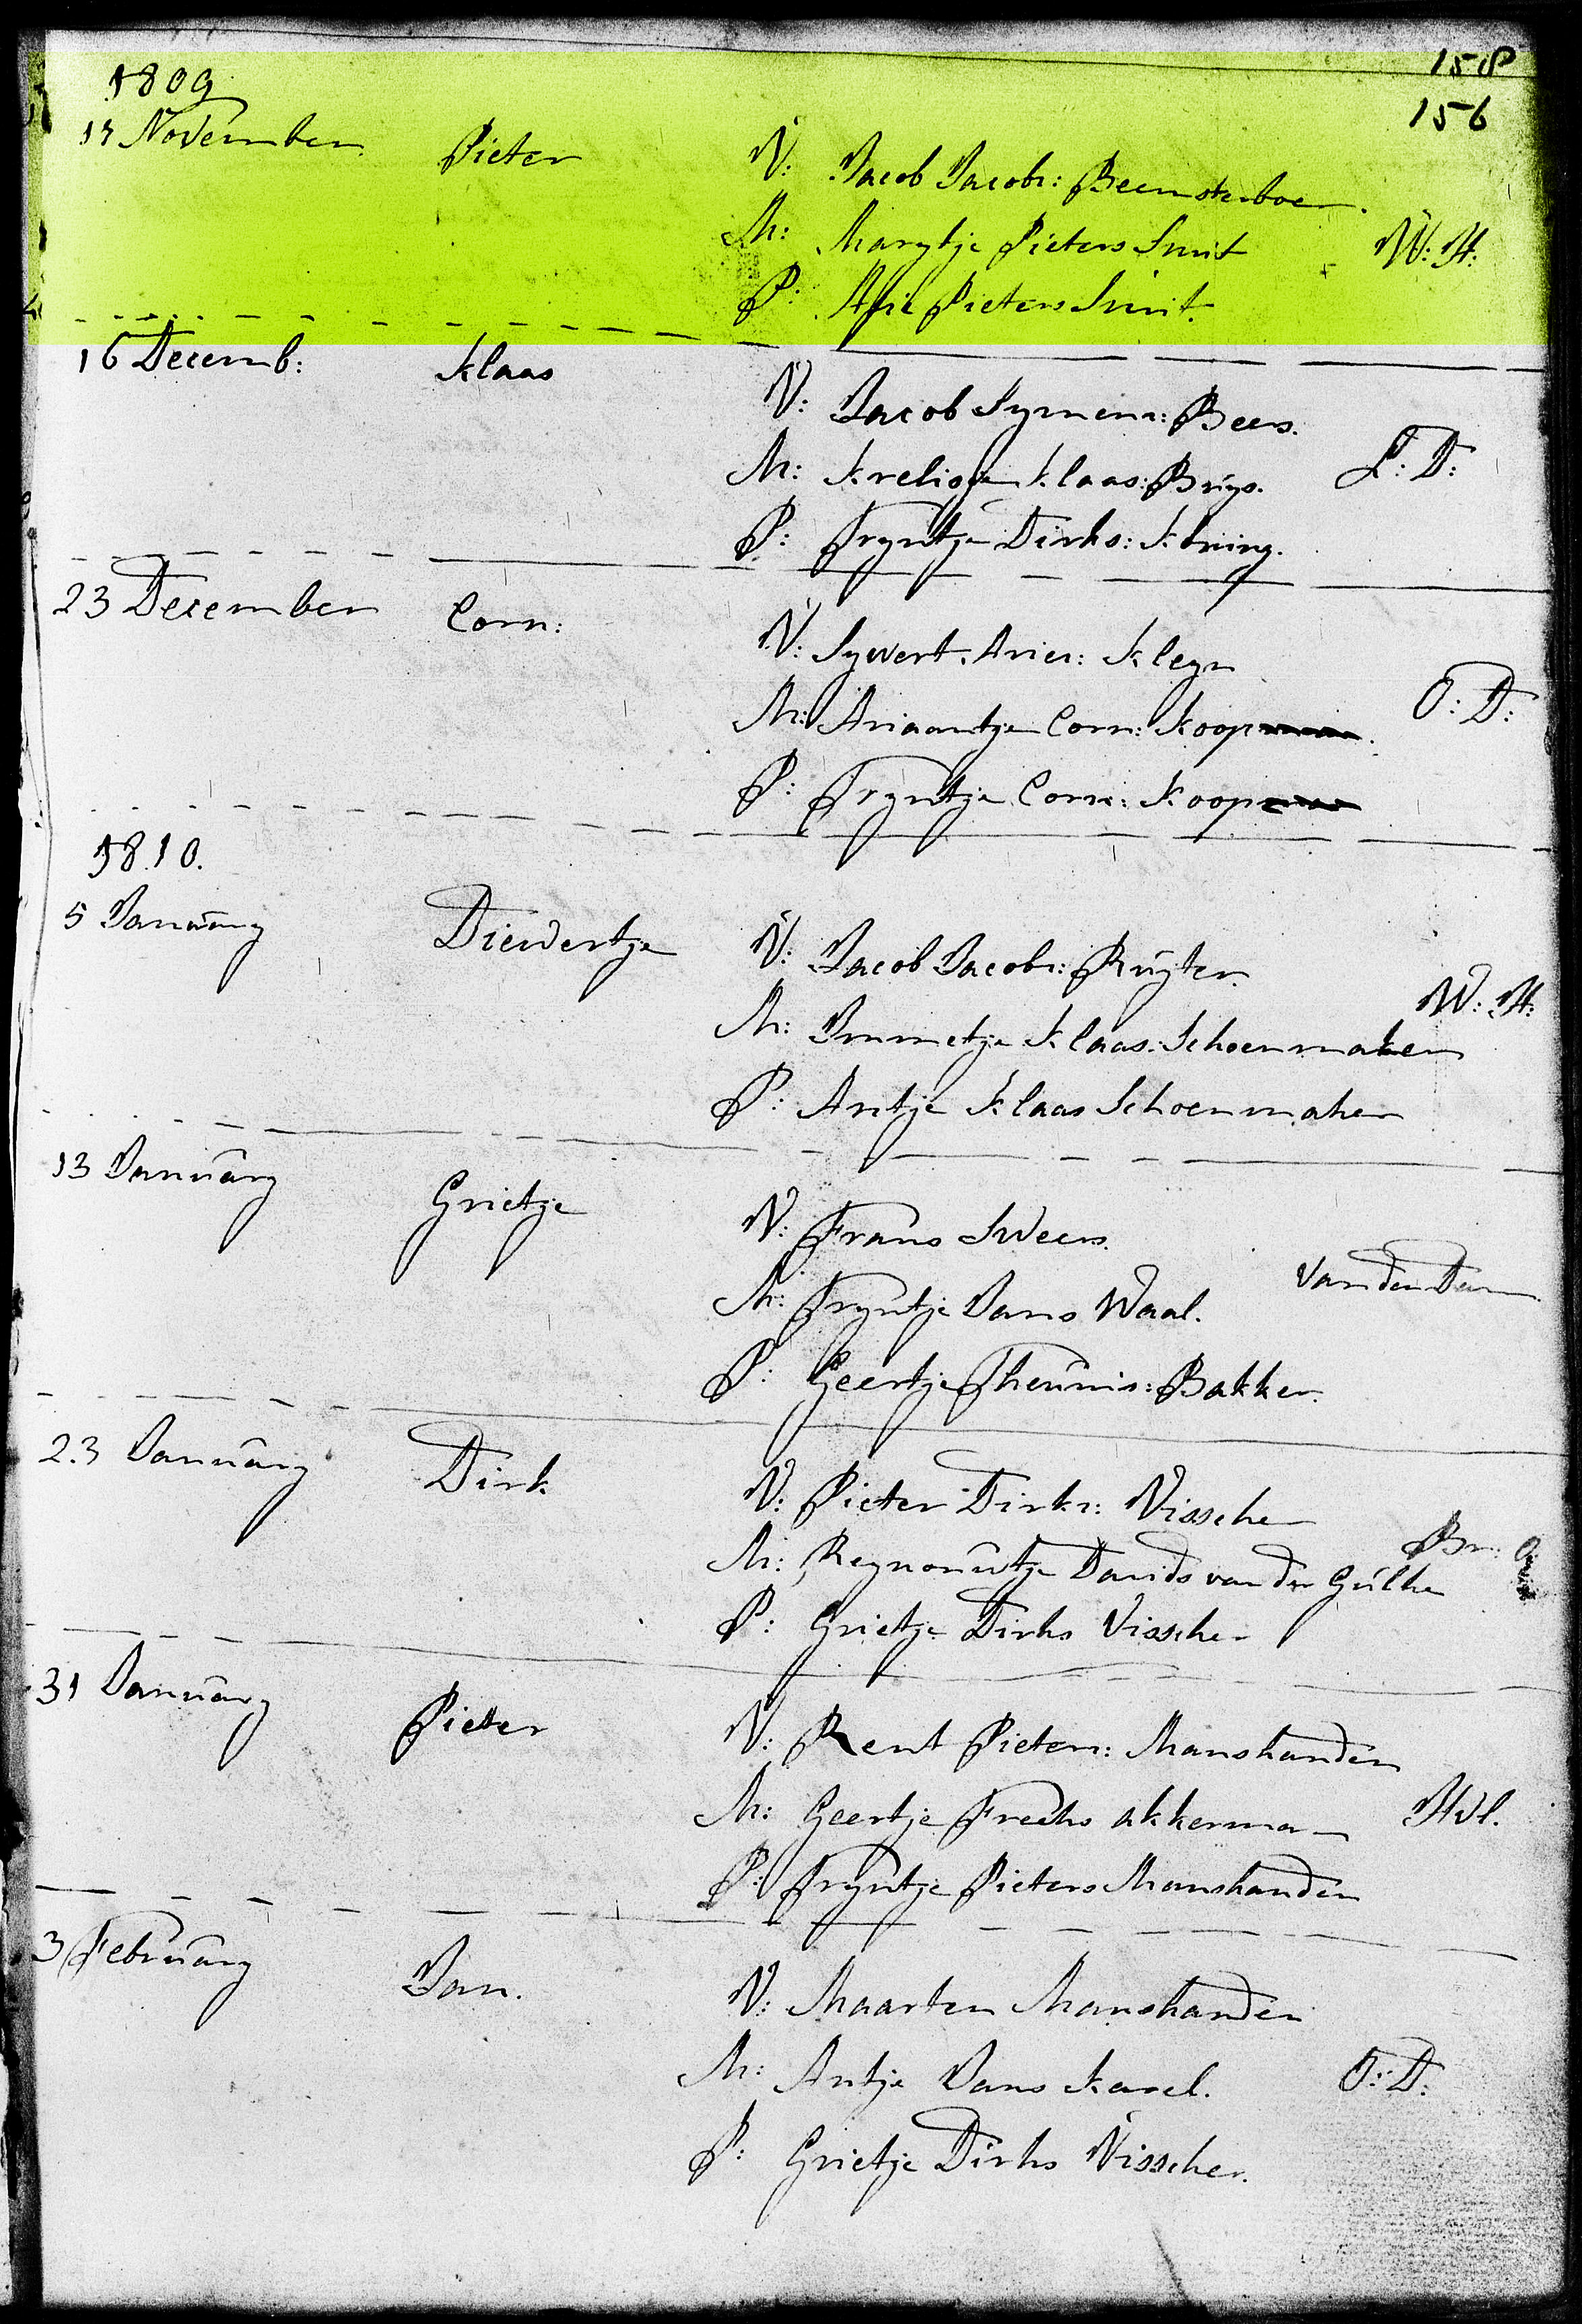 158
1809
156
17 November Pieter V: Jacob Jacobs: Beemsterboer.
M: Marytje Pieters Smit W: H:
P: Afie Pieters Smit.
16 Decemb: Klaas V: Jacob Symens: Beers.
M: Krelisje Klaas: Bruys. L: D:
P: Tryntje Dirks: Koning.
23 December Corn: V: Sywert Aries: Kleyn
M: Ariaantje Corn: Koop O: D:
P: Tryntje Corn: Koop
1810.
5 January Diewertje V: Jacob Jacobs: Ruyter.
M: Immetje Klaas: Schoenmaker W: H:
P: Antje Klaas Schoenmaker
13 January Grietje V: Frans Sweers.
M: Tryntje Jans Waal. van den Dam
P: Geertje Theunis: Bakker.
23 January Dirk V: Pieter Dirks: Visscher
M: Reynouwtje Davids van der Gulke Br:
P: Grietje Dirks Visscher
31 January Pieter V: Rent Pieters: Manshanden
M: Geertje Freeks akkerman Hvl.
P: Tryntje Pieters Manshanden
3 February Jan. V: Maarten Manshanden
M: Antje Jans Karel. O: D:
P: Grietje Dirks Visscher.